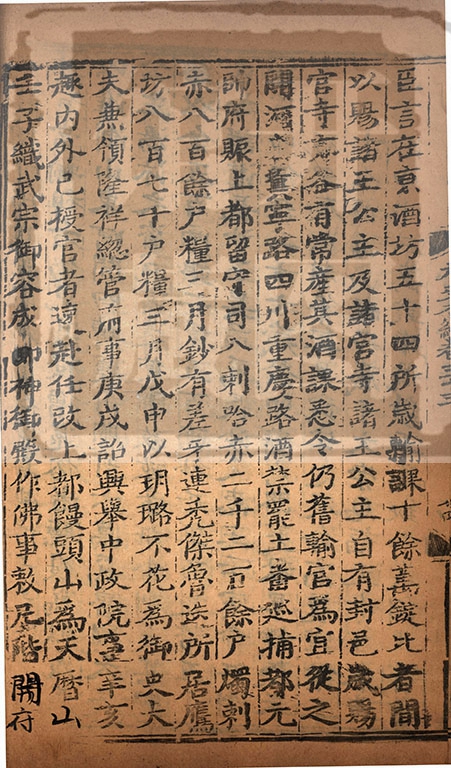 臣言在京酒坊五十四所歲輸課十餘萬錠比者間
以賜諸王公主及諸官寺諸王公主自有封邑歲賜
官寺亦各有常産其酒課悉令仍舊輸官爲宜從之
開河冀寧路四川重慶路酒禁罷土番巡捕都元
帥府賑上都留守司八剌哈赤二千二百餘户燭剌
赤八百餘户糧三月鈔有差牙連禿傑魯迭所居鷹
坊八百七十户糧三月戊申以玥璐不花爲御史大
夫兼領隆祥總管府事庚戌詔興舉中政院事辛亥
趣内外已授官者速赴任改上都饅頭山爲天曆山
壬子織武宗御容成即神御殿作佛事敕凡階開府